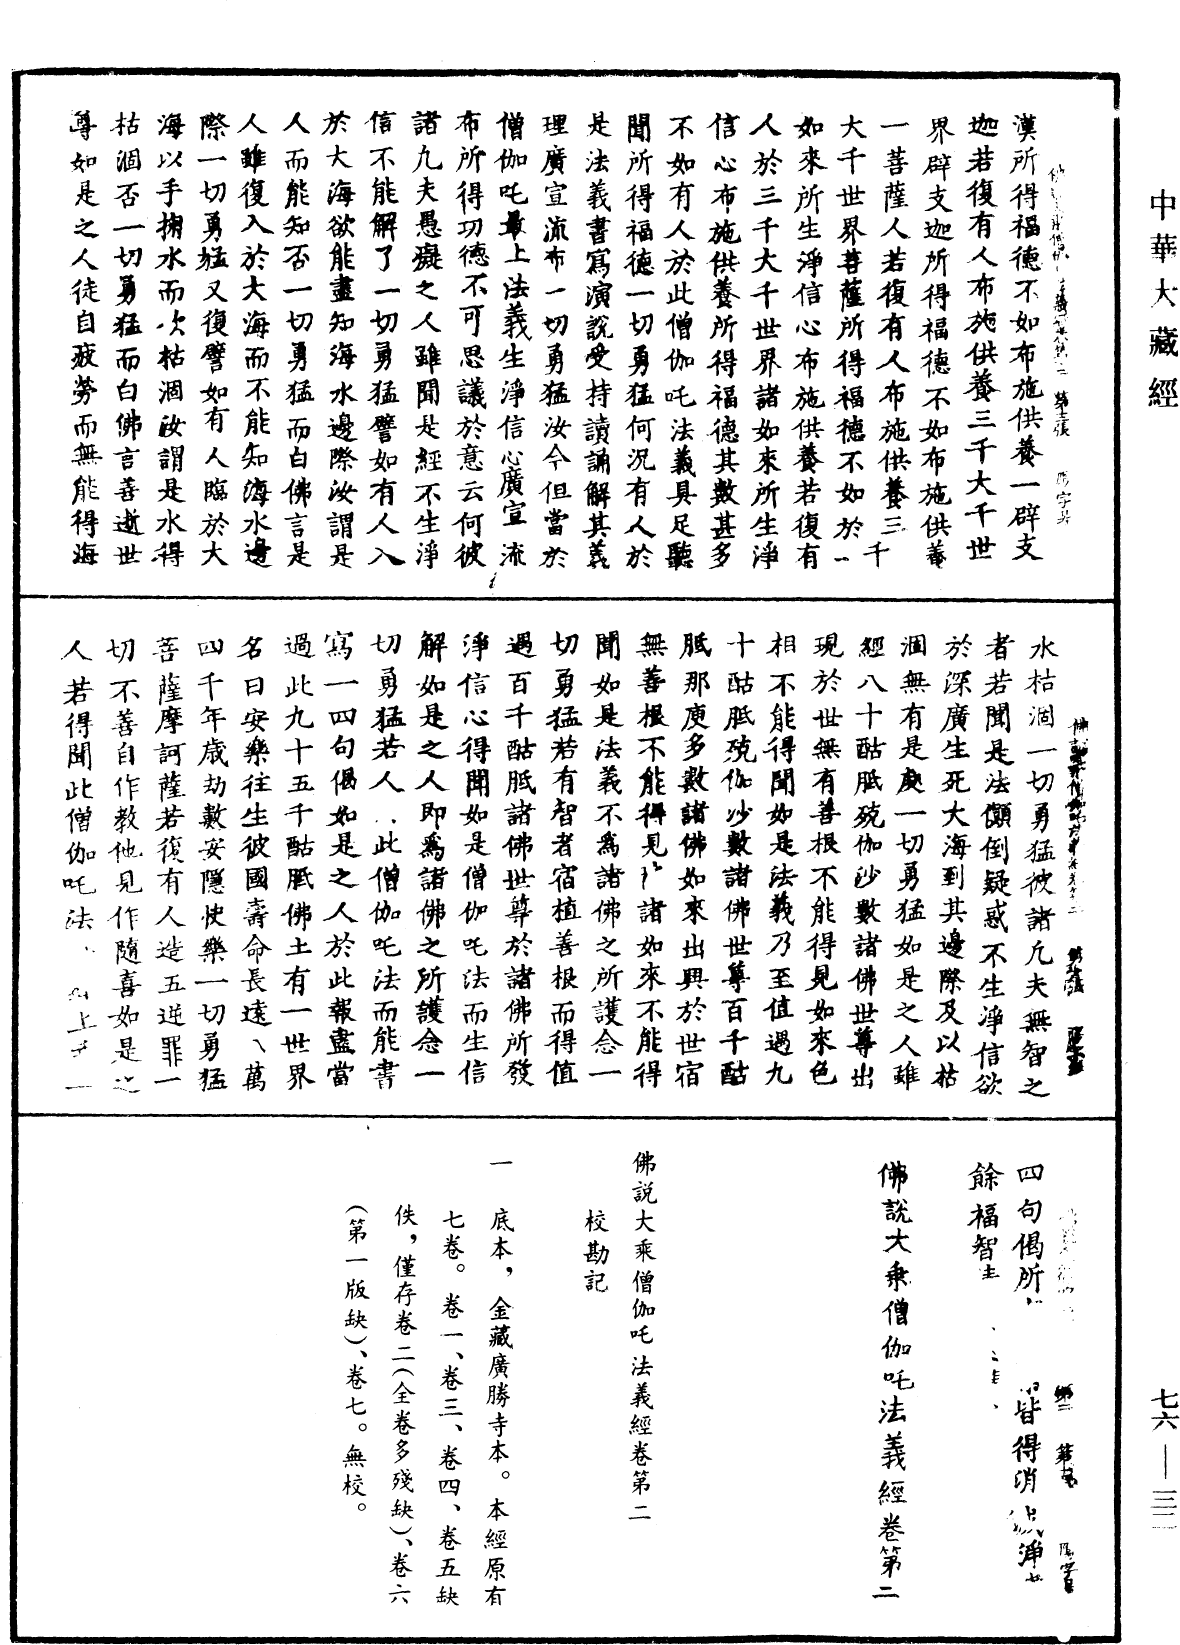 中華大藏經
漢所得福德不如布施供養一辟支
迦若復有人布施供養三千大千世
界辟支迦所得福德不如布施供養
一菩薩人若復有人布施供養三千
大千世界菩薩所得福德不如於一
如來所生淨信心布施供養若復有
人於三千大千世界諸如來所生淨
信心布施供養所得福德其數甚多
不如有人於此僧伽吒法義具足聽
聞所得福德一切勇猛何況有人於
是法義書寫演說受持讀誦解其義
理廣宣流布一切勇猛汝今但當於
僧伽吒最上法義生淨信心廣宣流
布所得功德不可思議於意云何彼
諸凡夫愚癡之人雖聞是經不生淨
信不能解了一切勇猛譬如有人入
於大海欲能盡知海水邊際汝謂是
人而能知否一切勇猛而白佛言是
人雖復入於大海而不能知海水邊
際一切勇猛又復譬如有人臨於大
海以手掬水而欲枯涸汝謂是水得
枯涸否一切勇猛而白佛言善逝世
尊如是之人徒自疲勞而無能得海
水枯涸一切勇猛彼諸凡夫無智之
者若聞是法顛倒疑惑不生淨信欲
於深廣生死大海到其邊際及以枯
涸無有是處一切勇猛如是之人雖
經八十酤胝殑伽沙數諸佛世尊出
現於世無有善根不能得見如來色
相不能得聞如是法義乃至值遇九
十酤胝殑伽沙數諸佛世尊百千酤
胝那庾多數諸佛如來出興於世宿
無善根不能得見 諸如來不能得
聞如是法義不為諸佛之所護念一
切勇猛若有智者宿植善根而得值
遇百千酤胝諸佛世尊於諸佛所發
淨信心得聞如是僧伽吒法而生信
解如是之人即為諸佛之所護念一
切勇猛若人 此僧伽吒法而能書
寫一四句偈如是之人於此報盡當
過此九十五千酤胝佛土有一世界
名曰安樂往生彼國壽命長遠八萬
四千年歲劫數安隱快樂一切勇猛
菩薩摩訶薩若復有人造五逆罪一
切不善自作教他見作隨喜如是之
人若得聞此僧伽吒法 上
四句偈所 皆得消 淨
餘福智
佛說大乘僧伽吒法義經卷第二
佛説大乘僧伽吒法義經卷第二
校勘記
一 底本，金藏廣勝寺本。本經原有
七卷。卷一、卷三、卷四、卷五缺
佚，僅存卷二（全卷多殘缺）、卷六
（第一版缺）、卷七。無校。
七六—三二